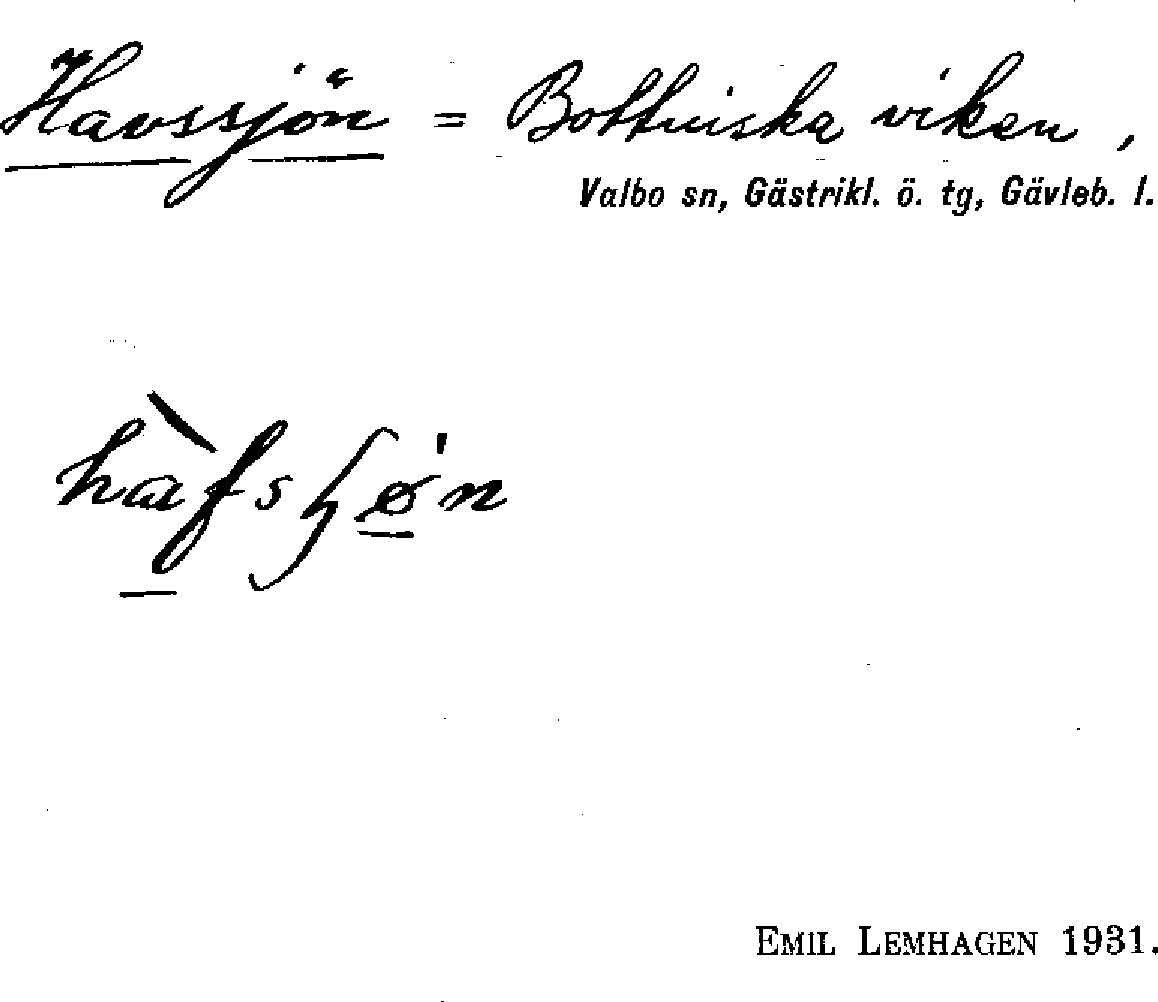 Havssjön = Bottniska viken,
Valbo sn, Gästrikl. ö. tg, Gävleb. l.
EMIL LEMHAGEN 1931.